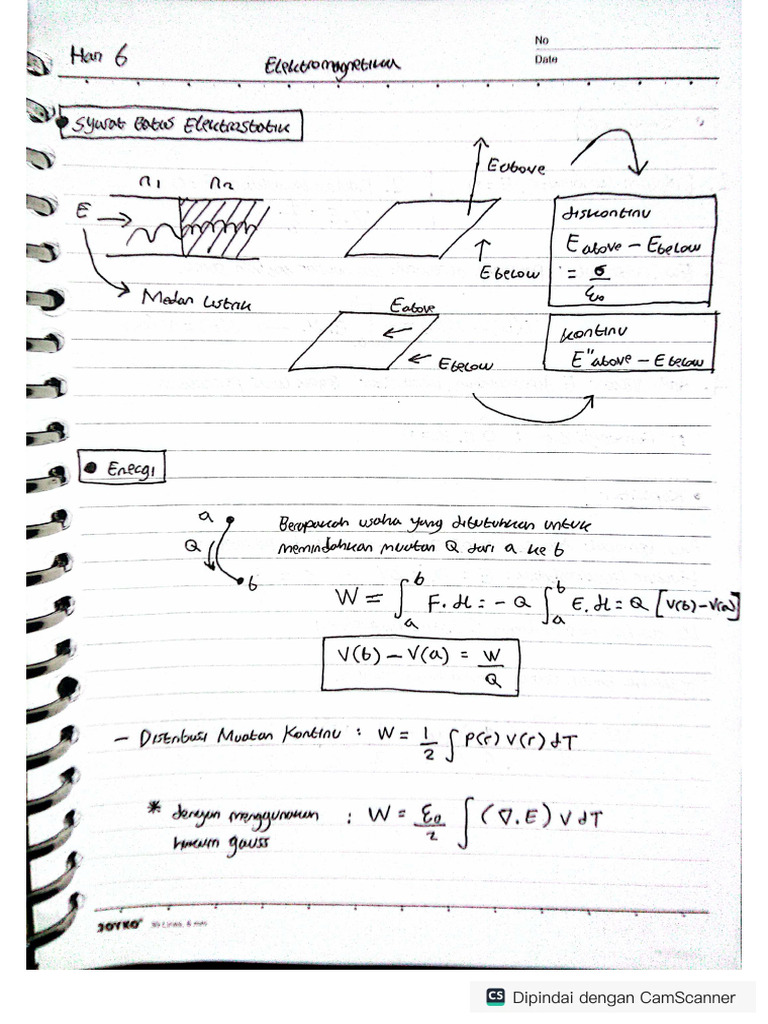 No
Hari 6
Elektromagnetika
Date
• Syarat Batas Elektrostatik
n1 n2
E
Medan Listrik
Eabove
Ebelow
diskontinu
E above – E below
= σ
ε0
Eabove
Ebelow
kontinu
E" above – E below
• Energi
a
Q
b
Berapakah usaha yang dibutuhkan untuk
memindahkan muatan Q dari a ke b
W = ∫ₐᵇ F. dl = – Q ∫ₐᵇ E. dl = Q [V(b) – V(a)]
V(b) – V(a) = W/Q
– Distribusi Muatan Kontinu : W = 1/2 ∫ ρ(r) V(r) dτ
* dengan menggunakan : W = ε0/2 ∫ (∇. E) V dτ
hukum gauss
JOYKO 30 Lines, 6 mm
CS Dipindai dengan CamScanner